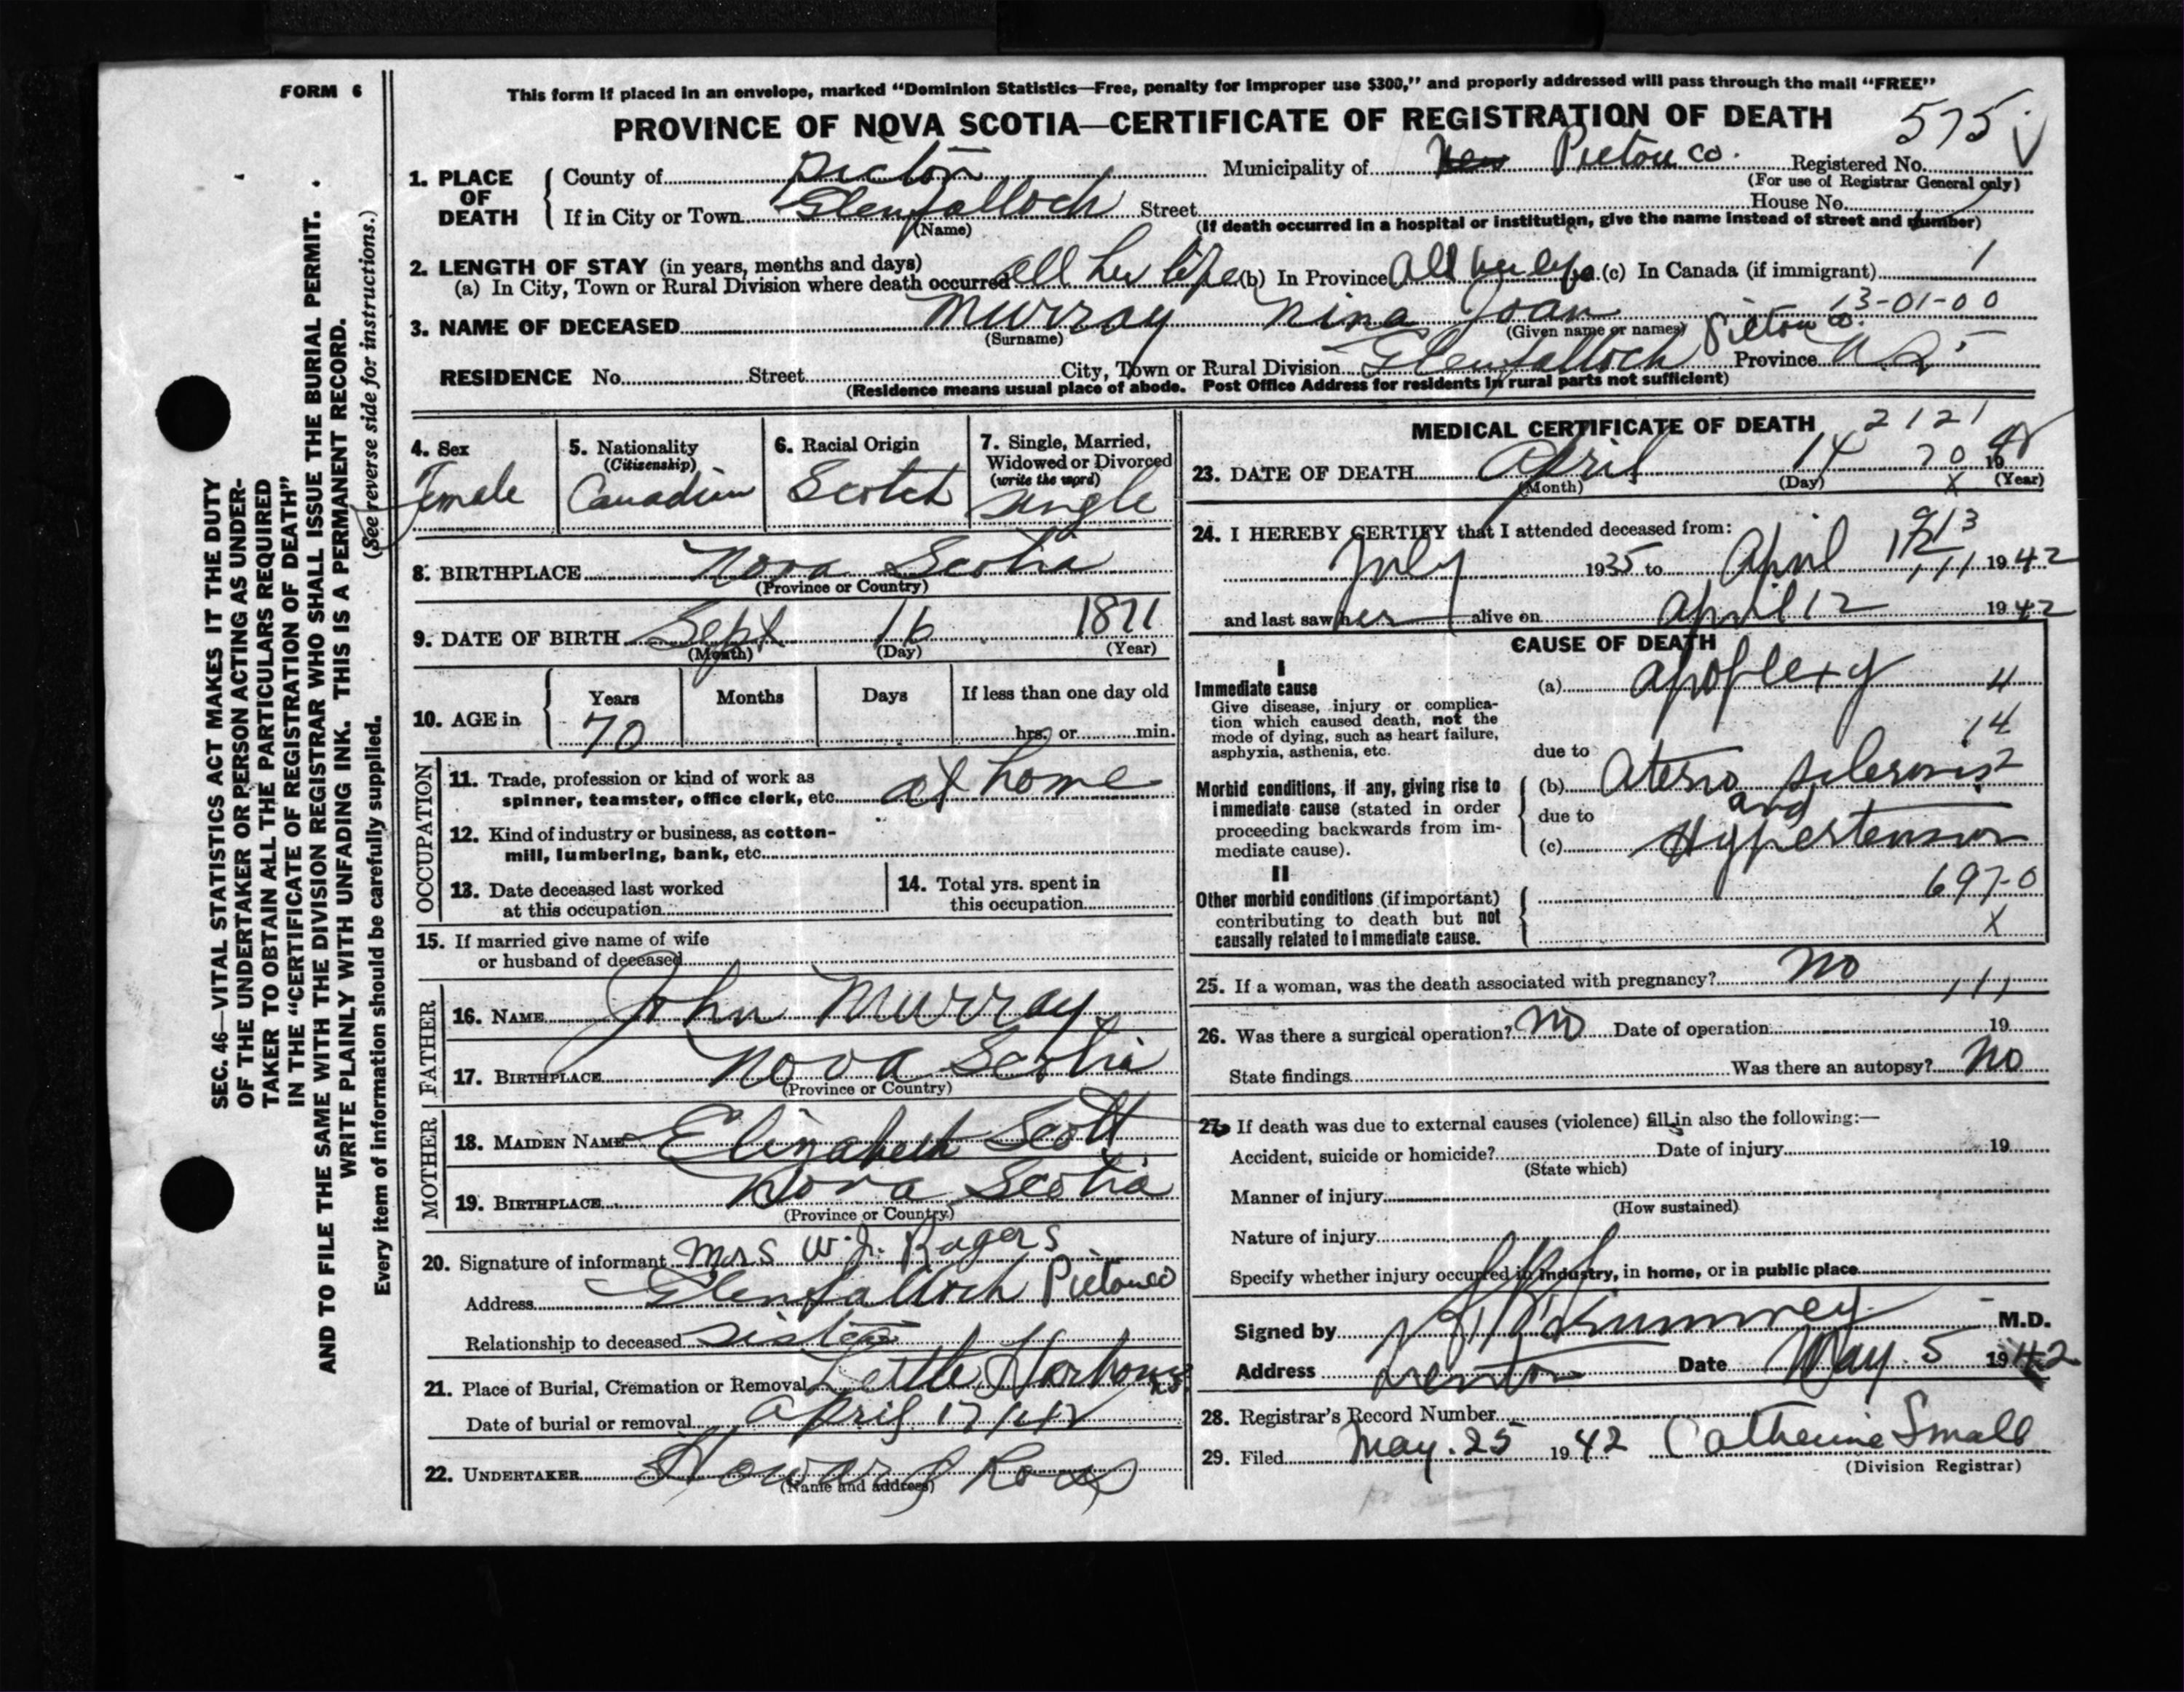 FORM 6
This form if placed in an envelope, marked "Dominion Statistics—Free, penalty for improper use $300," and properly addressed will pass through the mail "FREE"
PROVINCE OF NOVA SCOTIA—CERTIFICATE OF REGISTRATION OF DEATH
575
1. PLACE OF DEATH
County of Pictou Municipality of New Pictou Co. Registered No.
(For use of Registrar General only)
If in City or Town Glenfalloch Street House No.
(Name) (If death occurred in a hospital or institution, give the name instead of street and number)
2. LENGTH OF STAY (in years, months and days)
(a) In City, Town or Rural Division where death occurred all her life (b) In Province All her life (c) In Canada (if immigrant)
3. NAME OF DECEASED Murray Nina Joan 13-01-00
(Surname) (Given name or names)
RESIDENCE No. Street City, Town or Rural Division Glenfalloch Pictou Co. Province N.S.
(Residence means usual place of abode. Post Office Address for residents in rural parts not sufficient)
SEC. 46—VITAL STATISTICS ACT MAKES IT THE DUTY
OF THE UNDERTAKER OR PERSON ACTING AS UNDER-
TAKER TO OBTAIN ALL THE PARTICULARS REQUIRED
IN THE "CERTIFICATE OF REGISTRATION OF DEATH"
AND TO FILE THE SAME WITH THE DIVISION REGISTRAR WHO SHALL ISSUE THE BURIAL PERMIT.
WRITE PLAINLY WITH UNFADING INK. THIS IS A PERMANENT RECORD.
(See reverse side for instructions.)
Every item of information should be carefully supplied.
4. Sex
Female
5. Nationality
(Citizenship)
Canadian
6. Racial Origin
Scotch
7. Single, Married,
Widowed or Divorced
(write the word)
Single
8. BIRTHPLACE Nova Scotia
(Province or Country)
9. DATE OF BIRTH Sept 16 1871
(Month) (Day) (Year)
10. AGE in
Years Months Days If less than one day old
70 hrs. or min.
OCCUPATION
11. Trade, profession or kind of work as
spinner, teamster, office clerk, etc. at home
12. Kind of industry or business, as cotton-
mill, lumbering, bank, etc.
13. Date deceased last worked
at this occupation
14. Total yrs. spent in
this occupation
15. If married give name of wife
or husband of deceased
FATHER
16. NAME John Murray
17. BIRTHPLACE Nova Scotia
(Province or Country)
MOTHER
18. MAIDEN NAME Elizabeth Scott
19. BIRTHPLACE Nova Scotia
(Province or Country)
20. Signature of informant Mrs W. J. Rogers
Address Glenfalloch Pictou Co
Relationship to deceased sister
21. Place of Burial, Cremation or Removal Little Harbour N.S.
Date of burial or removal April 17/42
22. UNDERTAKER Howard Ross
(Name and address)
MEDICAL CERTIFICATE OF DEATH 2121
23. DATE OF DEATH April 14 70 1942
(Month) (Day) (Year)
X
24. I HEREBY CERTIFY that I attended deceased from:
July 1935 to April 12 1942
and last saw her alive on April 12 1942
CAUSE OF DEATH
I
Immediate cause
Give disease, injury or complica-
tion which caused death, not the
mode of dying, such as heart failure,
asphyxia, asthenia, etc.
(a) apoplexy
due to
Morbid conditions, if any, giving rise to
immediate cause (stated in order
proceeding backwards from im-
mediate cause).
(b) aterio sclerosis
and
due to
(c) Hypertension
II
Other morbid conditions (if important)
contributing to death but not
causally related to immediate cause.
697-0
X
25. If a woman, was the death associated with pregnancy? No
26. Was there a surgical operation? No Date of operation 19
State findings Was there an autopsy? No
27. If death was due to external causes (violence) fill in also the following:—
Accident, suicide or homicide? Date of injury 19
(State which)
Manner of injury
(How sustained)
Nature of injury
Specify whether injury occurred in industry, in home, or in public place
Signed by M.D.
Address Trenton Date May 5 1942
28. Registrar's Record Number
29. Filed May. 25 1942 Catherine Small
(Division Registrar)